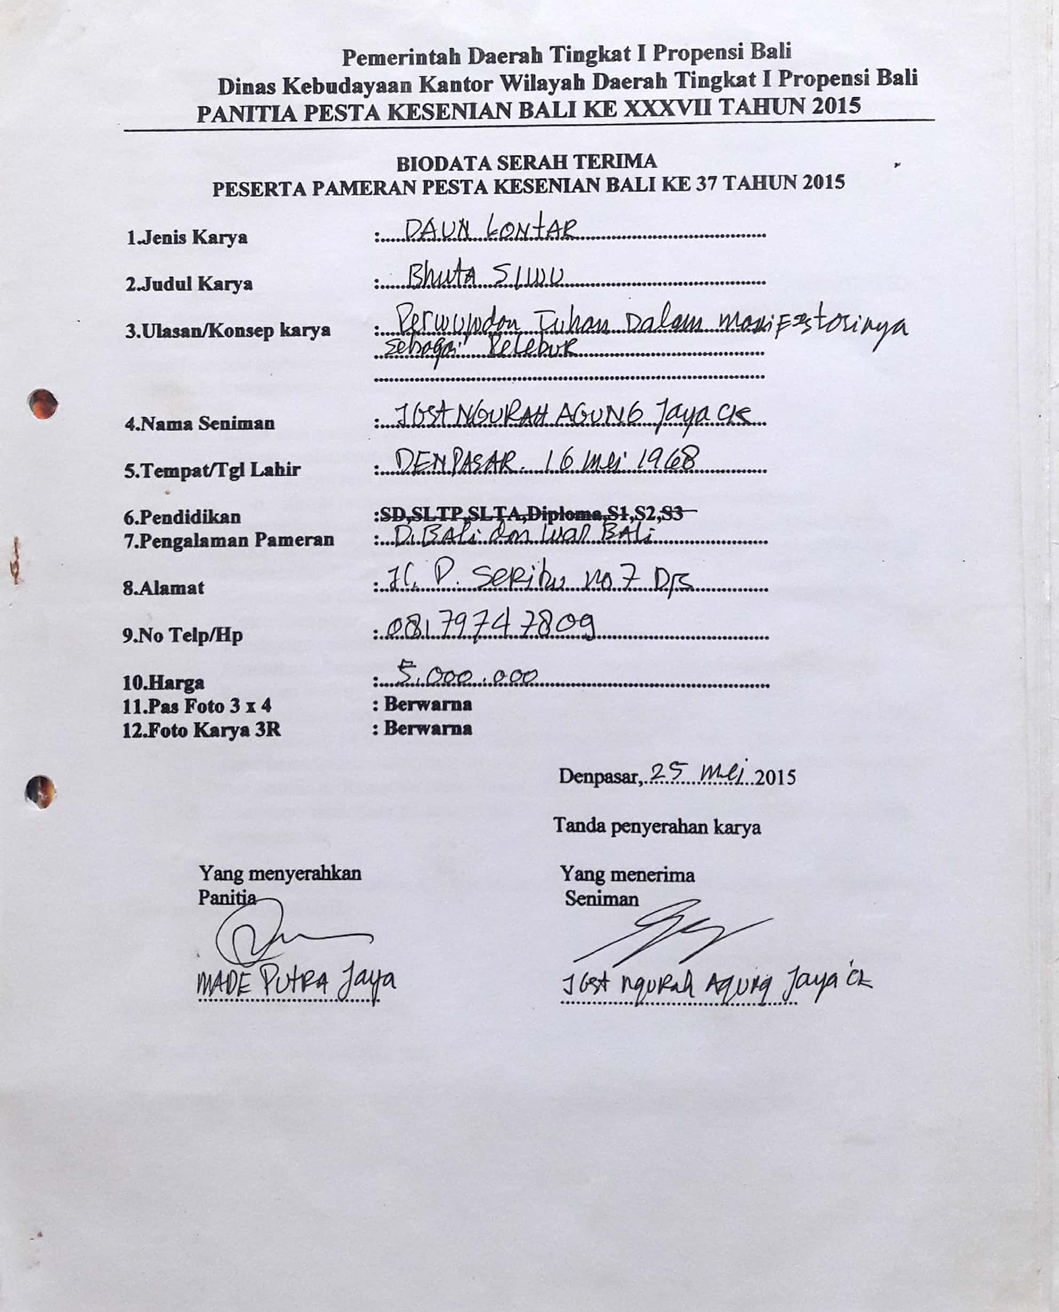 Pemerintah Daerah Tingkat I Propensi Bali
Dinas Kebudayaan Kantor Wilayah Daerah Tingkat I Propensi Bali
PANITIA PESTA KESENIAN BALI KE XXXVII TAHUN 2015
BIODATA SERAH TERIMA
PESERTA PAMERAN PESTA KESENIAN BALI KE 37 TAHUN 2015
1.Jenis Karya : DAUN LONTAR
2.Judul Karya : Bhuta SIWU
3.Ulasan/Konsep karya : Perwujudan Tuhan Dalam manifestasinya
sebagai Pelebur
4.Nama Seniman : IGST NGURAH AGUNG Jaya CK
5.Tempat/Tgl Lahir : DENPASAR. 16 mei 1968
6.Pendidikan :SD,SLTP,SLTA,Diploma,S1,S2,S3
7.Pengalaman Pameran : Di BALi dan luar BALi
8.Alamat : Jl. P. Seribu no 7 Dps
9.No Telp/Hp : 08179747809
10.Harga : 5.000.000
11.Pas Foto 3 x 4 : Berwarna
12.Foto Karya 3R : Berwarna
Denpasar, 25 mei 2015
Tanda penyerahan karya
Yang menyerahkan Yang menerima
Panitia Seniman
MADE PUTRA Jaya IGST NGURAH AGUNG Jaya CK